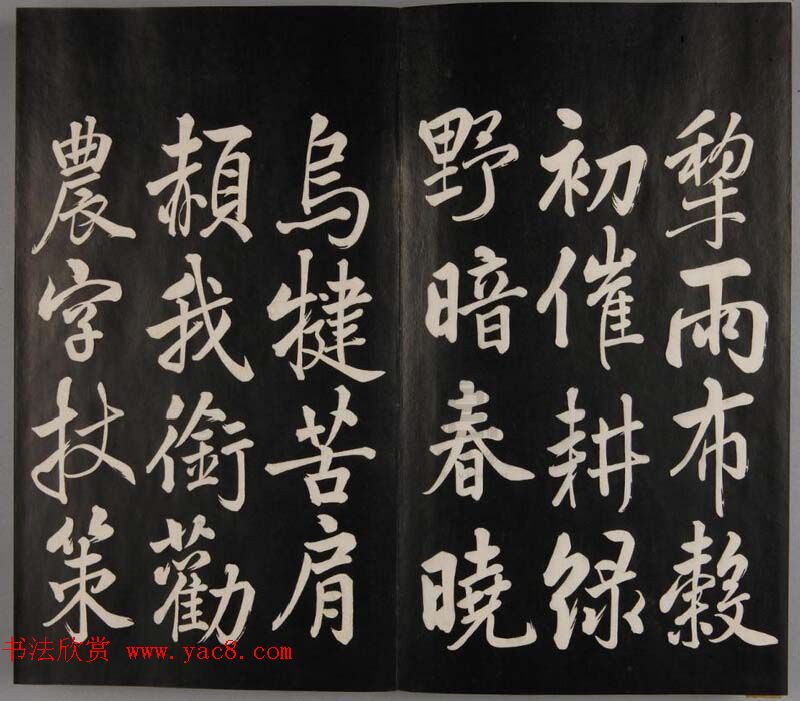 犁雨布穀
初催耕緑
野暗春曉
烏犍苦肩
赬我銜勸
農字扙策
书法欣赏 www.yac8.com